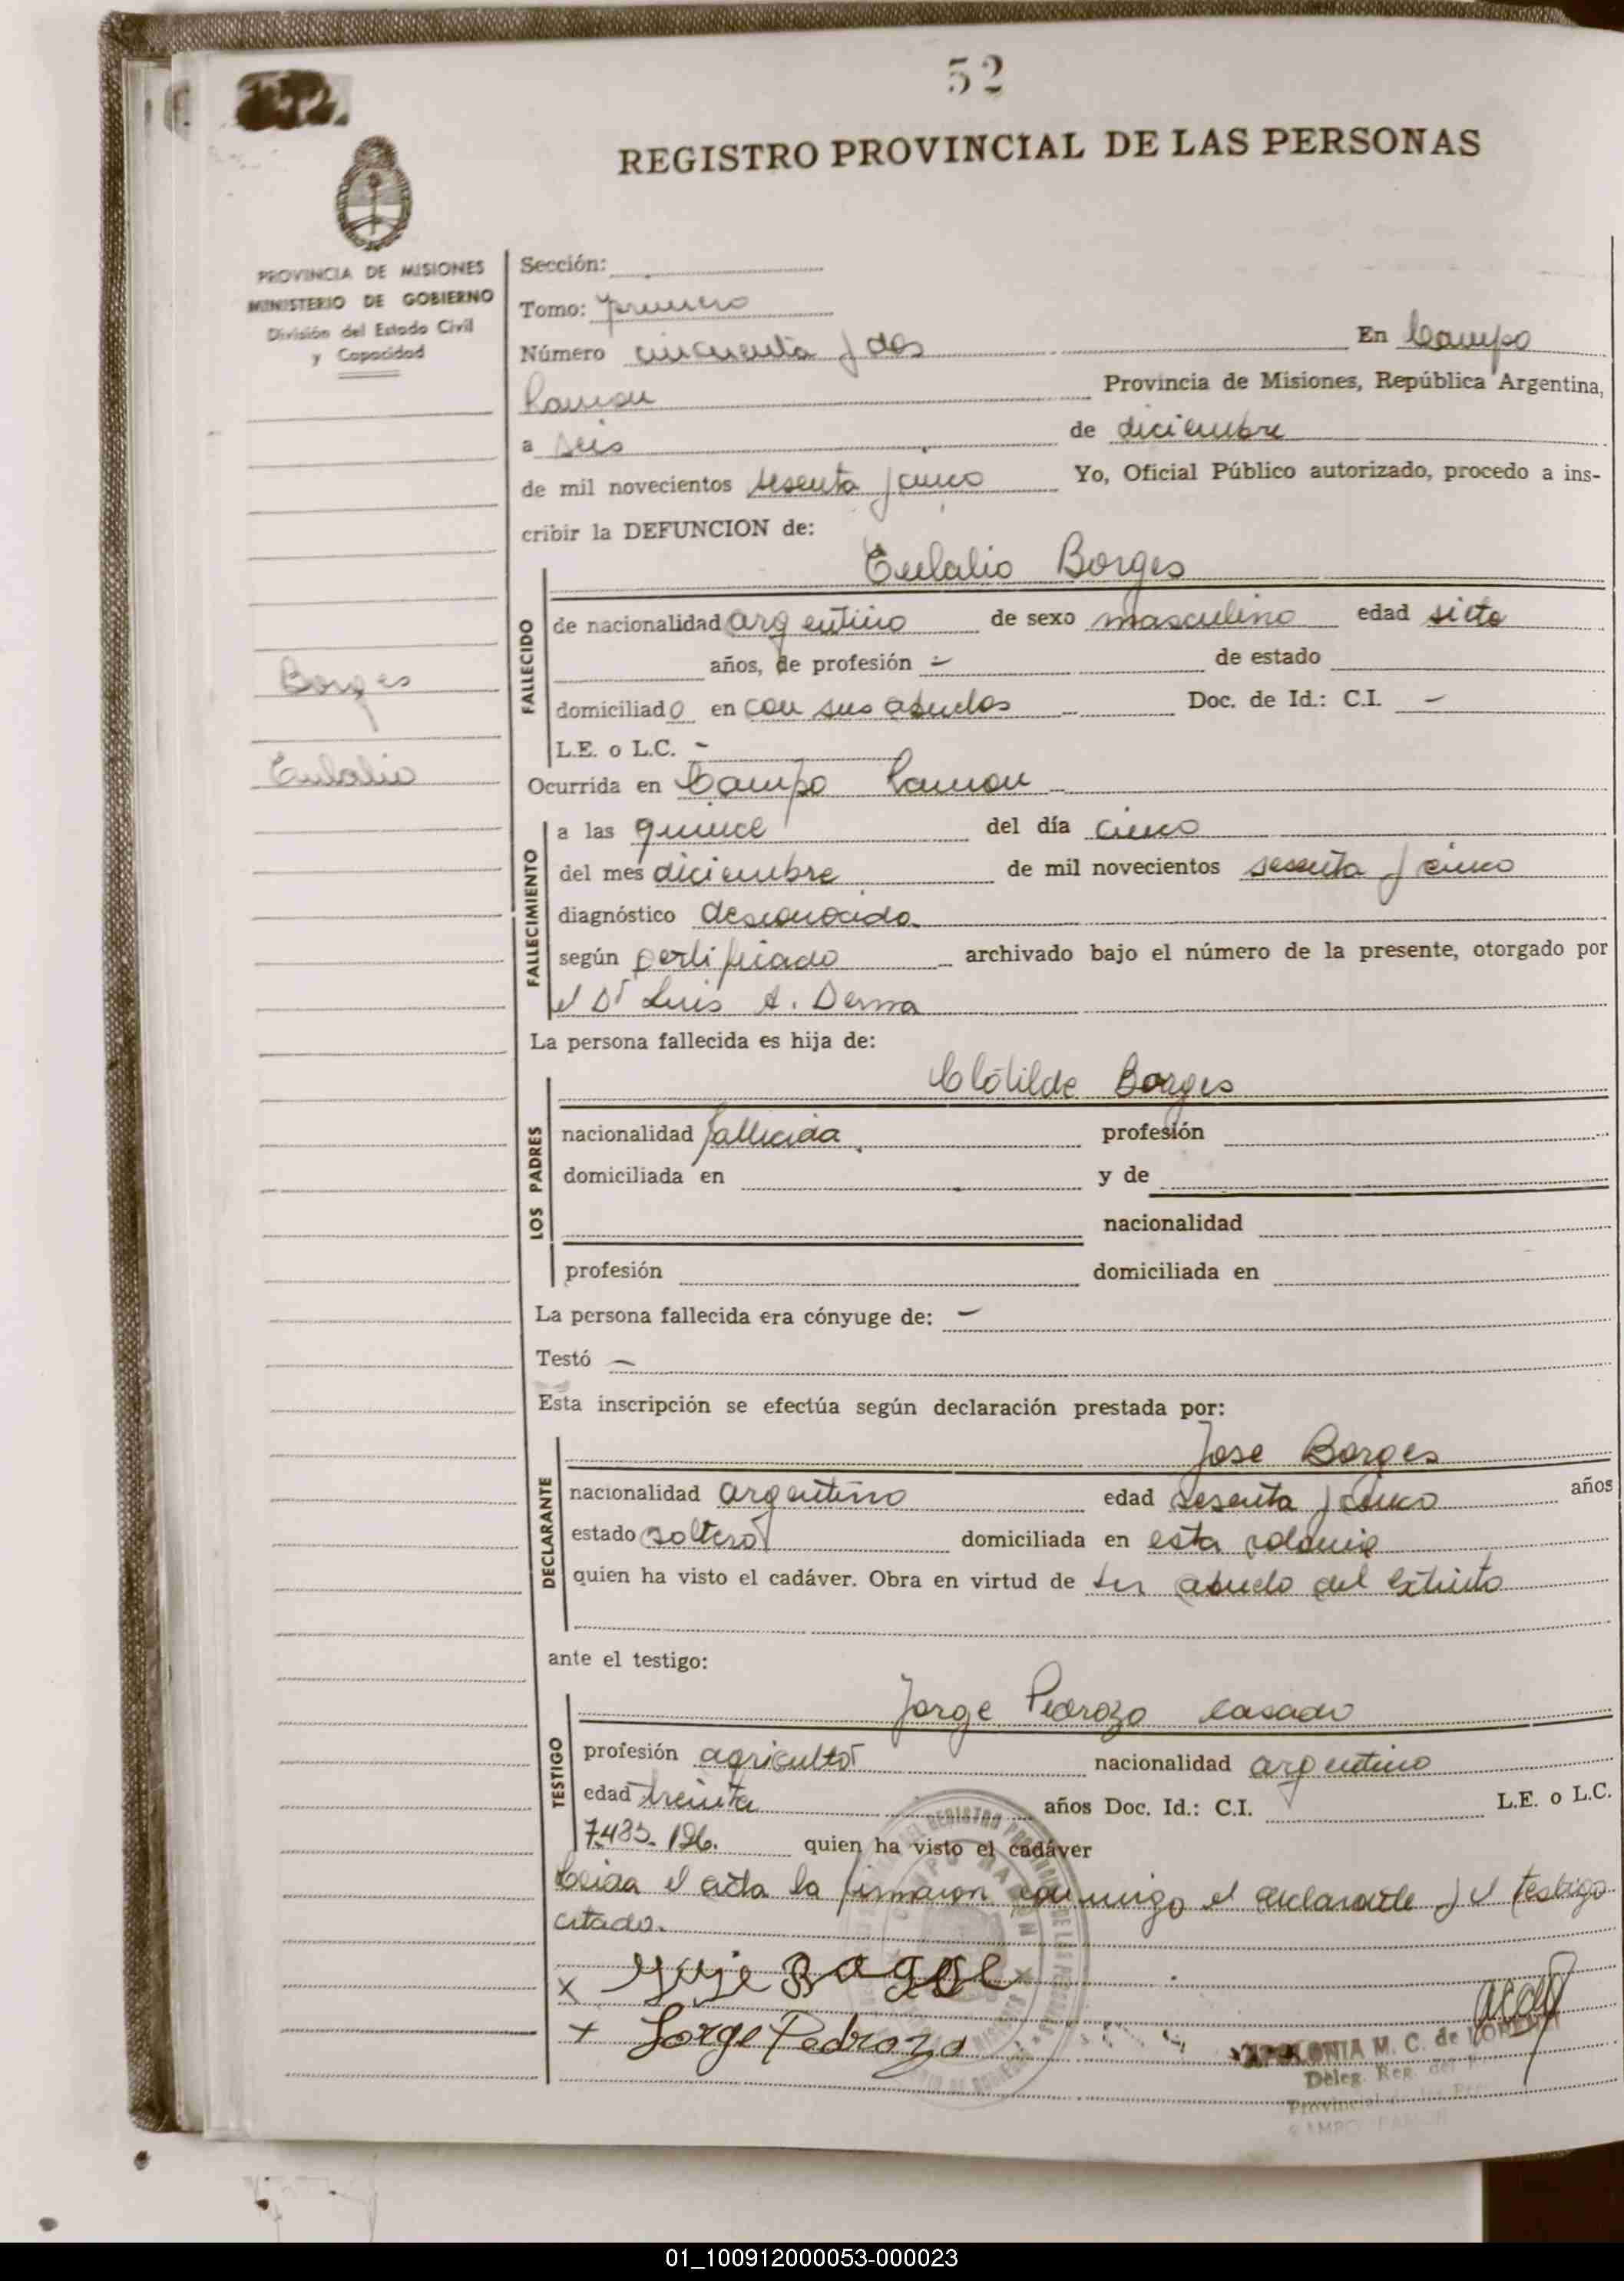 52
REGISTRO PROVINCIAL DE LAS PERSONAS
PROVINCIA DE MISIONES
MINISTERIO DE GOBIERNO
División del Estado Civil
y Capacidad
Sección:
Tomo: primero
Número cincuenta y dos En Campo
Ramon Provincia de Misiones, República Argentina,
a seis de diciembre
de mil novecientos sesenta y cinco Yo, Oficial Público autorizado, procedo a ins-
cribir la DEFUNCION de:
Eulalio Borges
FALLECIDO
de nacionalidad argentino de sexo masculino edad siete
años, de profesión - de estado
Borges
domiciliado en con sus abuelos Doc. de Id.: C.I. -
L.E. o L.C. -
Eulalio
Ocurrida en Campo Ramon
FALLECIMIENTO
a las quince del día cinco
del mes diciembre de mil novecientos sesenta y cinco
diagnóstico desconocido
según certificado archivado bajo el número de la presente, otorgado por
el Dr Luis A. Derna
La persona fallecida es hija de:
Clotilde Borges
LOS PADRES
nacionalidad fallecida profesión
domiciliada en y de
nacionalidad
profesión domiciliada en
La persona fallecida era cónyuge de: -
Testó -
Esta inscripción se efectúa según declaración prestada por:
Jose Borges
DECLARANTE
nacionalidad argentino edad sesenta y cinco años
estado soltero domiciliada en esta colonia
quien ha visto el cadáver. Obra en virtud de ser abuelo del extinto
ante el testigo:
Jorge Pedrozo casado
TESTIGO
profesión agricultor nacionalidad argentino
edad treinta años Doc. Id.: C.I. L.E. o L.C.
7.485.126. quien ha visto el cadáver
Leida el acta la firmaron conmigo el declarante y el testigo
citado.
x
+ Jorge Pedrozo
M. C. de
Deleg. Reg. del
Provincial de las
CAMPO RAMON
01_100912000053-000023